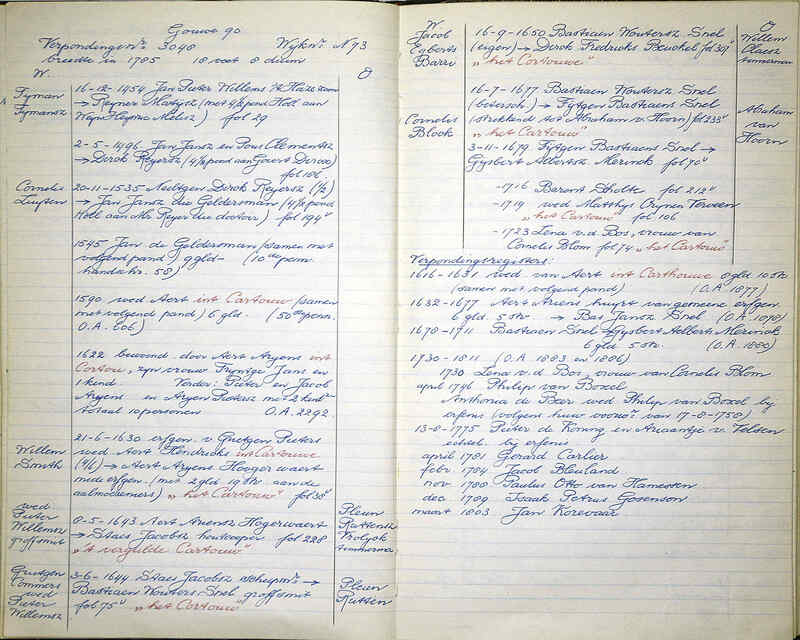 Gouwe 90
Verpondingsnr. 3098 Wijknr. N 73
breedte in 1785 18 voet 8 duim
W. O
Tyman
Tymansz
16-12-1454 Jan Pieter Willems
→ Reyner Matysz (met 4 lb pond Holl aan
Weyn Heynric Melisz) fol 29
2-5-1496 Jan Jansz en Pous Clementsz
→ Dirck Reyersz (4 lb pond aan Govert
fol 106
Cornelis
Luyten
20-11-1535 Aeltgen Dirck Reyersz (1/2)
→ Jan Jansz die Geldersman (4 lb pond
Holl aan Mr. Reyer die doctoir) fol 194v
1545 Jan de Geldersman (samen met
volgend pand) 9 gld- (10de penn.
handschr. 58)
1590 wed Aert int Cartouw (samen
met volgend pand) 6 gld. (50ste penn.
O.A. 606)
1622 bewoond door Aert Aryens int
Cortou, zyn vrouw Tryntge Jans en
1 kind Verder: Pieter en Jacob
Aryens en Aryen Pietersz met 2 kindn
totaal 10 personen O.A. 2292.
Willem
Smith
21-6-1630 erfgen. v Grietgen Pieters
wed Aert Hendricks int Cartouwe
→ Aert Aryens Hooger waert
mide erfgen. (met 2 gld 19 st. aan de
aelmoesmers) "het Cartouw" fol 38v
wed
Pieter
Willemsz
grofsmit
8-5-1643 Aert Ariensz Hogerwaert
→ Staes Jacobsz houtcoper fol 228
"'t vergulde Cartouw"
Pleun
Ruttensz
Vrolyck
timmerman
Grietgen
Commers
wed
Pieter
Willemsz
3-6-1644 Staes Jacobsz scheepmr. →
Bastiaen Wouters Snel grofsmit
fol 75v "het Cartouw"
Pleun
Rutten
W. O
Jacob
Egberts
Barri
16-9-1650 Bastiaen Woutersz Snel
(eigen) → Dirck Fredricks Beuckel fol 309
"het Cartouwe"
Willem
Claesz
timmerman
16-7-1677 Bastiaen Woutersz Snel
→ Fytgen Bastiaens Snel
Cornelis
Block
(streckende tot Abraham v. Hoorn) fol 235v
"het Cartouw"
Abraham
van
Hoorn
3-11-1679 Fytgen Bastiaens Snel →
Gysbert Aelbertsz Merinck fol 70v
-1716 Barent Sholte fol 212v
-1719 wed Matthys Crynen Terveen
"het Cartouw" fol 106
-1723 Lena v.d. Bos, vrouw van
Cornelis Blom fol 74 "het Cartouw"
Verpondingsregisters:
1616-1631 wed van Aert int Carthouwe 8 gld 10 st.
(samen met volgend pand) (O.A. 1877)
1632-1677 Aert Ariens huyrt van gemeene erfgen.
6 gld 5 st. → Bas Jansz Snel (O.A. 1878)
1678-1711 Bastiaen Snel → Gysbert Aelberts Merinck
6 gld 5 st. (O.A. 1880)
1730-1811 (O.A. 1883 en 1886)
1730 Lena v.d. Bos, vrouw van Cornelis Blom
april 1746 Philip van Boxel
Anthonia de Beer wed Philip van Boxel bij
erfenis (volgens huw. voorw. van 17-8-1750)
13-8-1775 Pieter de Koning en Ariaantje v. Velsen
echtel. bij erfenis
april 1781 Gerard Carlier
febr 1784 Jacob Bleuland
nov 1788 Paulus Otto van Hamessen
dec 1789 Isaak Petrus Gosenson
maart 1803 Jan Korevaar